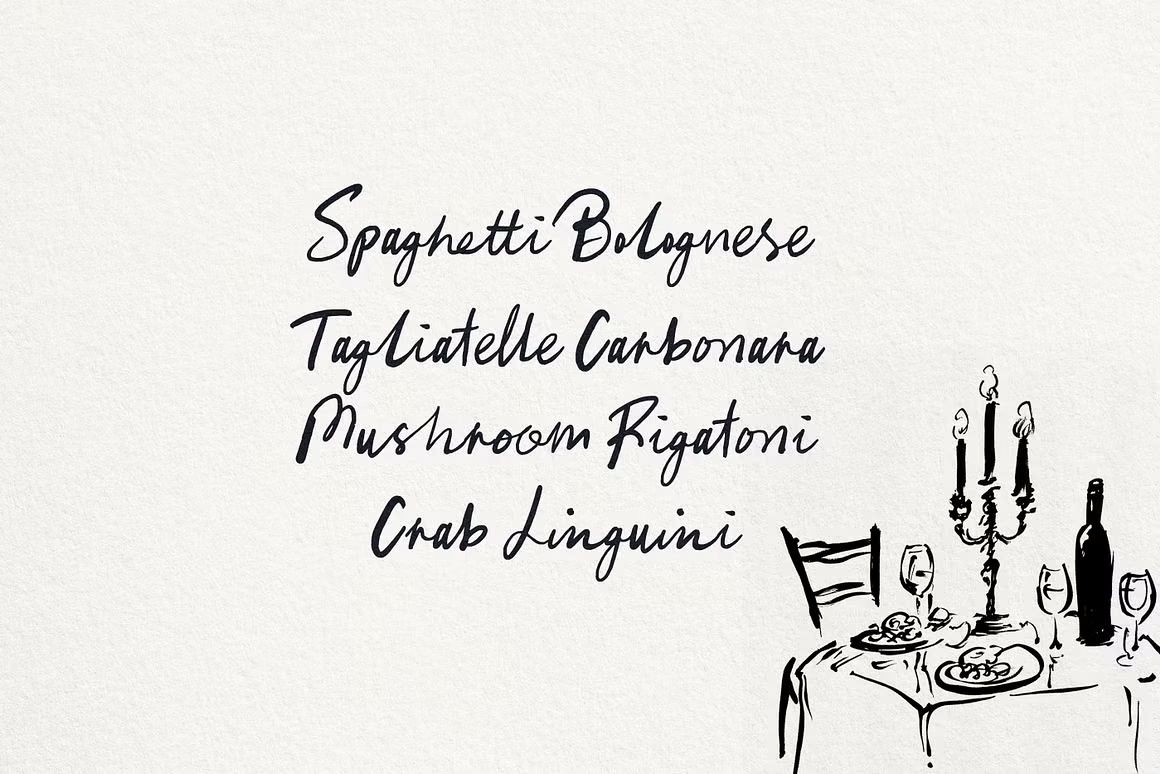 Spaghetti Bolognese
Tagliatelle Carbonara
Mushroom Rigatoni
Crab Linguini